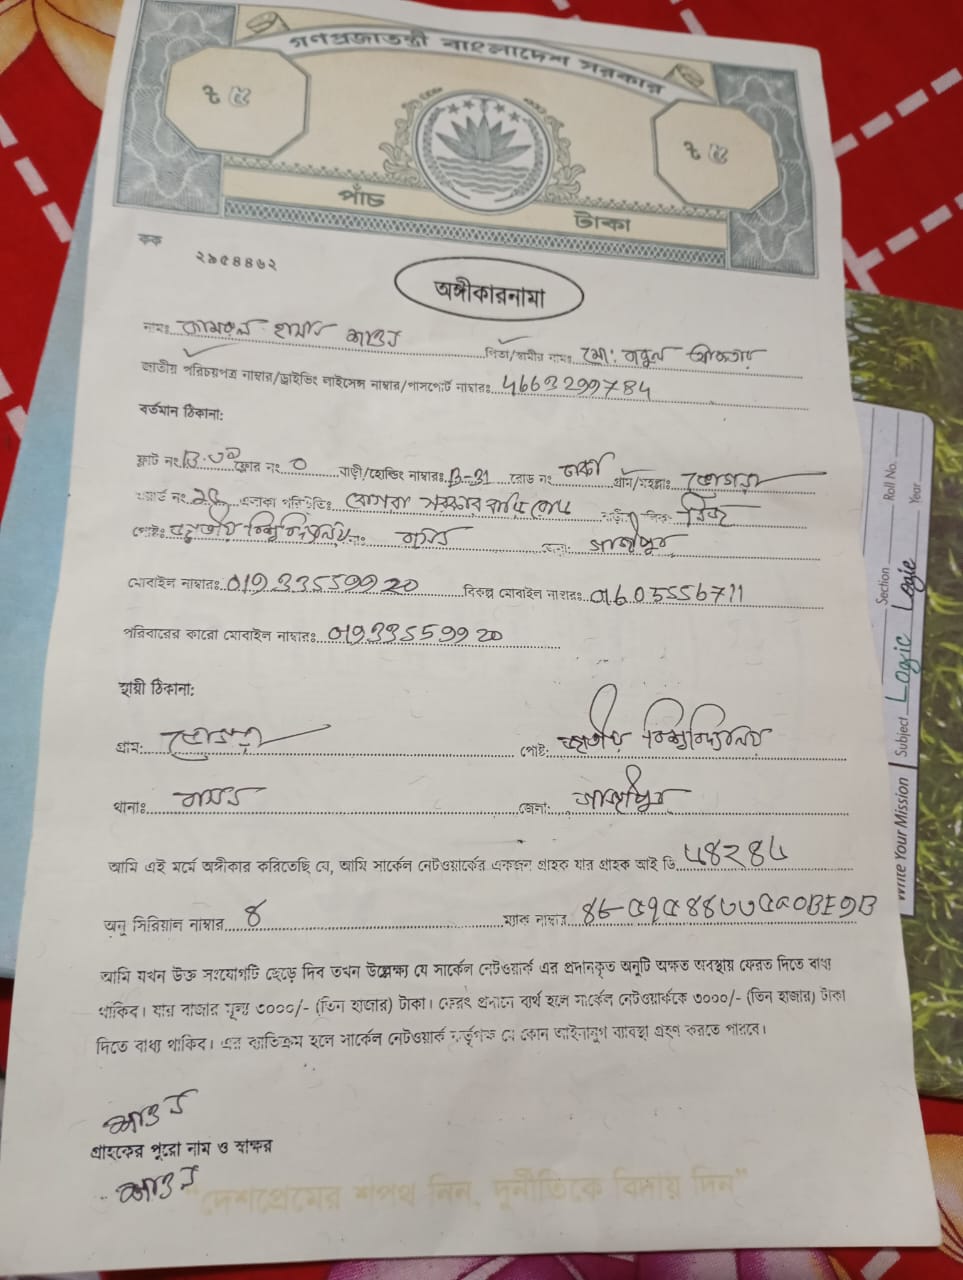 গণপ্রজাতন্ত্রী বাংলাদেশ সরকার
৳ ৫ ৳ ৫
পাঁচ টাকা
কক ২৯৫৪৪৬২
অঙ্গীকারনামা
নামঃ হাসান পিতা/স্বামীর নামঃ মোঃ
জাতীয় পরিচয়পত্র নাম্বার/ড্রাইভিং লাইসেন্স নাম্বার/পাসপোর্ট নাম্বারঃ 4663299784
বর্তমান ঠিকানা:
ফ্লাট নং ফ্লোর নং 0 বাড়ী/হোল্ডিং নাম্বারঃ B-31 রোড নং ঢাকা গ্রাম/মহল্লাঃ
ওয়ার্ড নং এলাকা পরিচিতিঃ
পোষ্টঃ জাতীয় বিশ্ববিদ্যালয় জেলাঃ গাজীপুর
মোবাইল নাম্বারঃ 01933559920 বিকল্প মোবাইল নাম্বারঃ 01603556711
পরিবারের কারো মোবাইল নাম্বারঃ 01933559920
স্থায়ী ঠিকানা:
গ্রাম: পোষ্ট: জাতীয় বিশ্ববিদ্যালয়
থানাঃ জেলাঃ গাজীপুর
আমি এই মর্মে অঙ্গীকার করিতেছি যে, আমি সার্কেল নেটওয়ার্কের একজন গ্রাহক যার গ্রাহক আই ডি
অনু সিরিয়াল নাম্বার ৪ ম্যাক নাম্বার
আমি যখন উক্ত সংযোগটি ছেড়ে দিব তখন উল্লেক্ষ্য যে সার্কেল নেটওয়ার্ক এর প্রদানকৃত অনুটি অক্ষত অবস্থায় ফেরত দিতে বাধ্য
থাকিব। যার বাজার মূল্য ৩০০০/- (তিন হাজার) টাকা। ফেরৎ প্রদানে ব্যর্থ হলে সার্কেল নেটওয়ার্ককে ৩০০০/- (তিন হাজার) টাকা
দিতে বাধ্য থাকিব। এর ব্যতিক্রম হলে সার্কেল নেটওয়ার্ক কর্তৃপক্ষ যে কোন আইনানুগ ব্যবস্থা গ্রহণ করতে পারবে।
গ্রাহকের পুরো নাম ও স্বাক্ষর
"দেশপ্রেমের শপথ নিন, দুর্নীতিকে বিদায় দিন"
Write Your Mission
Subject Logic Logic
Section
Roll No.
Year